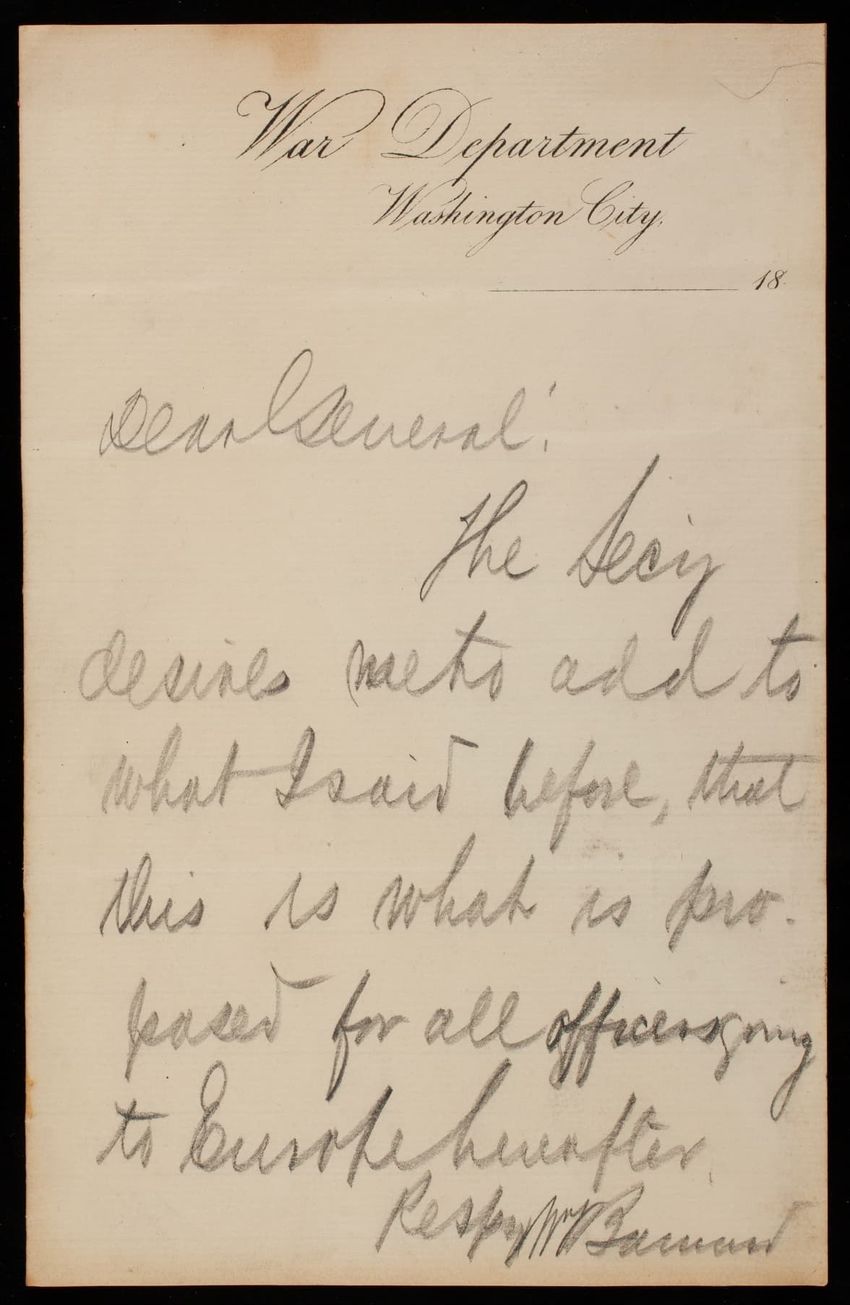 War Department
Washington City,
18
Dear General:
The Secy
desires me to add to
what I said before, that
this is what is pro-
posed for all officers going
to Europe hereafter
Respy Wm Barnard